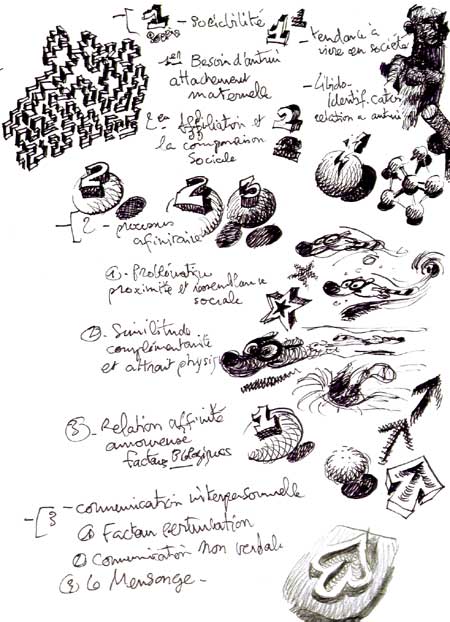 -[1 - sociabilité 1
- tendance à
vivre en société
1er Besoin d'autrui
attachement
maternelle
- Libido -
Identification
relation a autrui
2 en Affiliation et 2
la comparaison
sociale
2 2 3
-[2 - processus
affinitaire
1 - Problématique
proximité et ressemblance
sociale
2 - Similitude
complémentarité
et attrait physique
3 - Relation affinité
amoureuse
facteurs Biologiques
1
-[3 - communication interpersonnelle
1 Facteur perturbation
2 Communication non verbale
3 Le Mensonge -